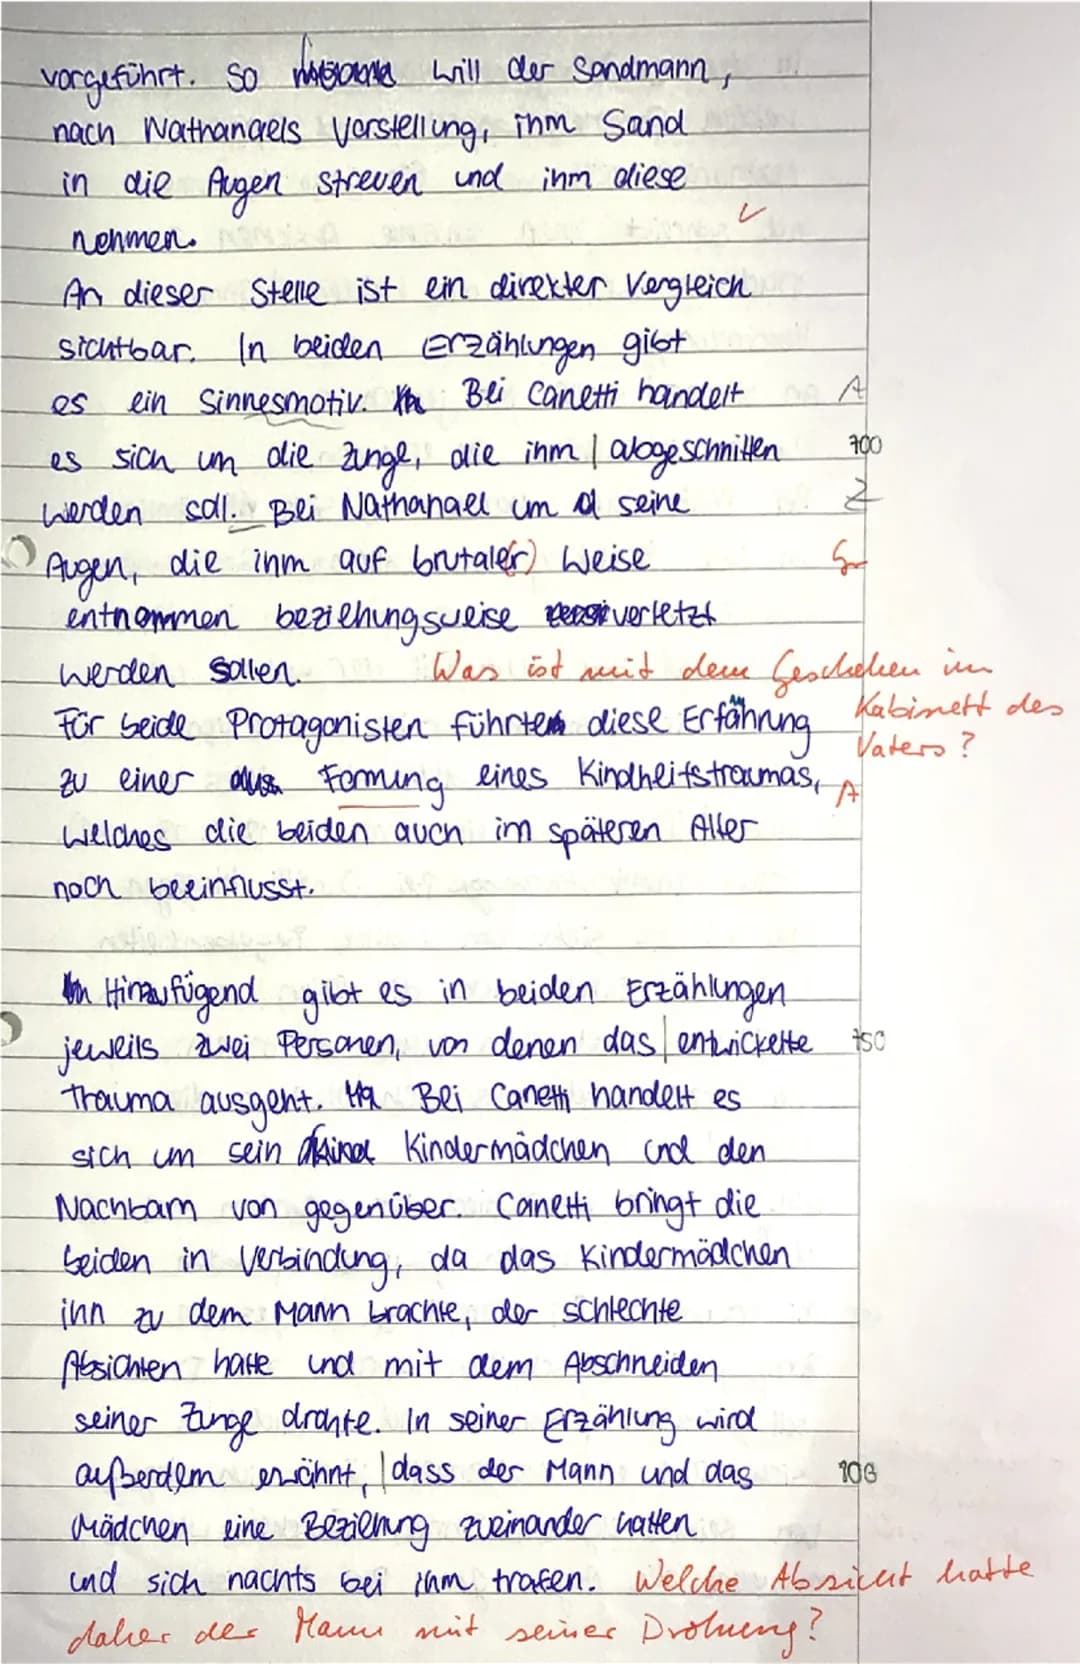 vorgeführt. So will der Sandmann,
nach Nathanaels Vorstellung, ihm Sand
in die Augen streuen und ihm diese
nehmen. ✓
An dieser Stelle ist ein direkter Vergleich
sichtbar. In beiden Erzählungen gibt
es ein Sinnesmotiv. Bei Canetti handelt A
es sich um die Zunge, die ihm | abgeschnitten 700
werden soll. Bei Nathanael um seine Z
Augen, die ihm auf brutale(r) Weise
entnommen beziehungsweise verletzt
werden sollen. Was ist mit dem Geschehen im
Kabinett des
Vaters?
Für beide Protagonisten führte diese Erfahrung
zu einer Formung eines Kindheitstraumas, A
welches die beiden auch im späteren Alter
noch beeinflusst.
Hinzufügend gibt es in beiden Erzählungen
jeweils zwei Personen, von denen das | entwickelte 750
Trauma ausgeht. Bei Canetti handelt es
sich um sein Kindermädchen und den
Nachbarn von gegenüber. Canetti bringt die
beiden in Verbindung, da das Kindermädchen
ihn zu dem Mann brachte, der schlechte
Absichten hatte und mit dem Abschneiden
seiner Zunge drohte. In seiner Erzählung wird
außerdem erwähnt, | dass der Mann und das
Mädchen eine Beziehung zueinander hatten
und sich nachts bei ihm trafen. Welche Absicht hatte
daher der Mann mit seiner Drohung?